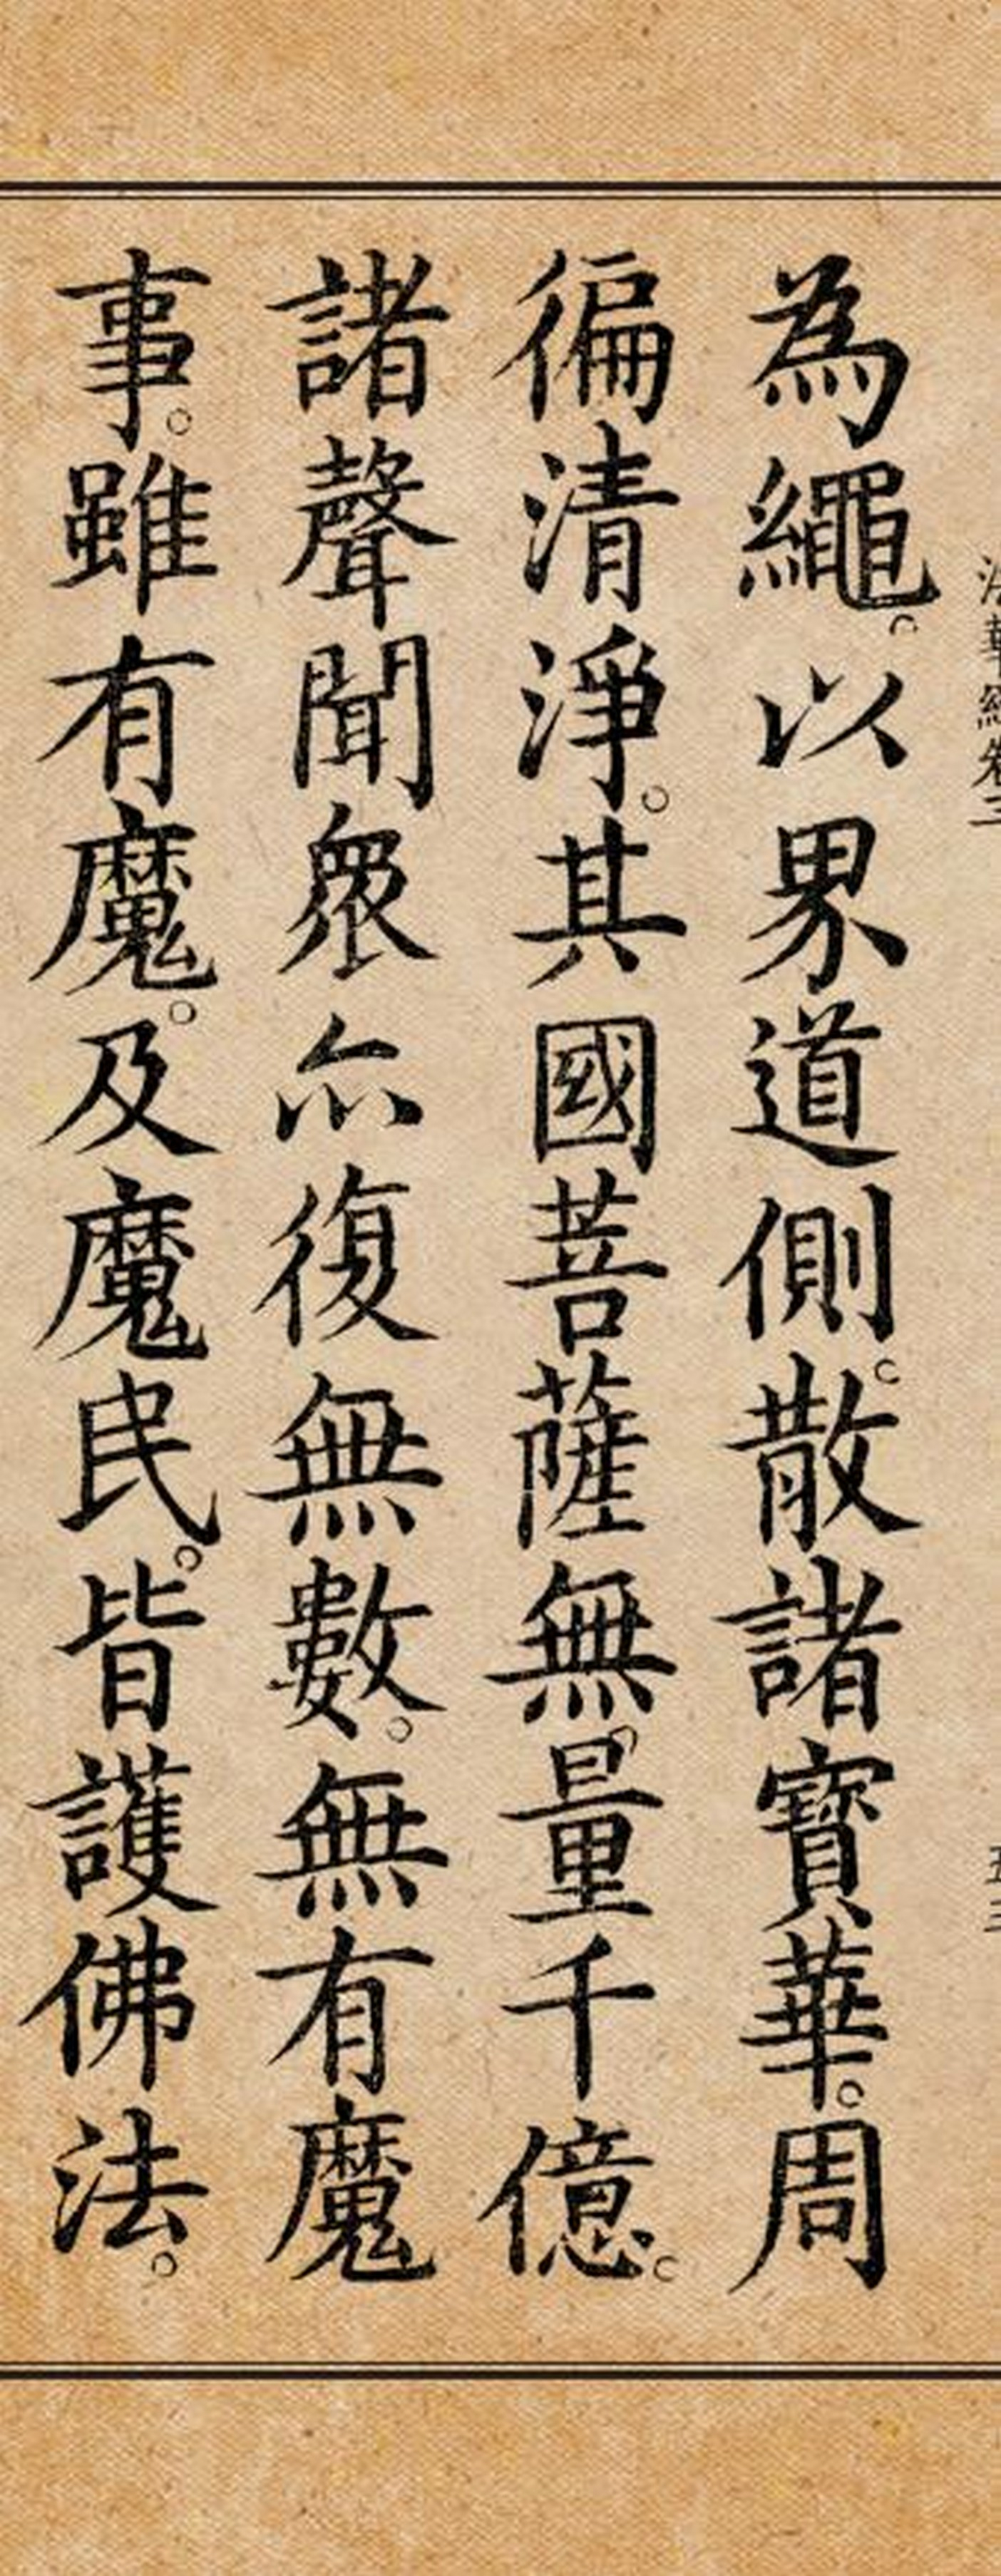 法華經卷三
五三
為繩。以界道側。散諸寶華。周
徧清淨。其國菩薩無量千億。
諸聲聞眾亦復無數。無有魔
事。雖有魔。及魔民。皆護佛法。